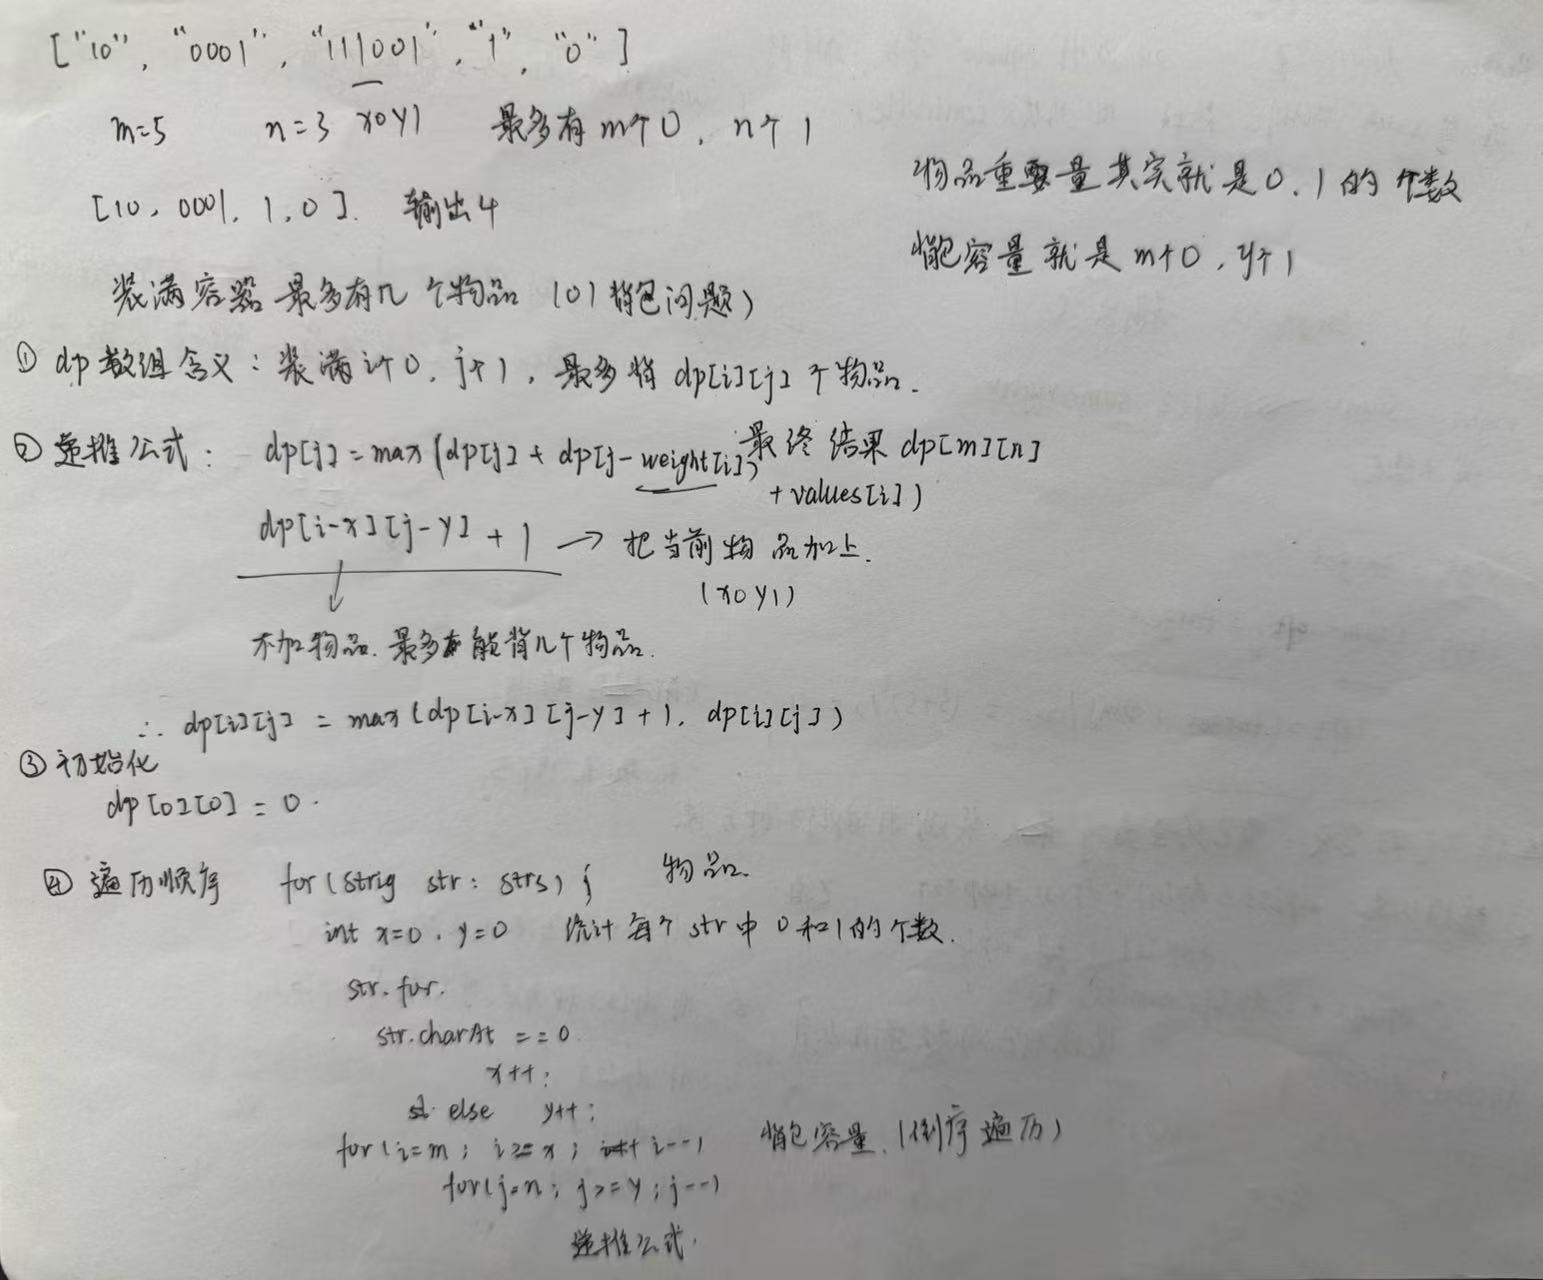 ["10", "0001", "111001", "1", "0"]
m=5 n=3 x0y1 最多有m个0, n个1
物品重量其实就是0,1的个数
[10, 0001, 1, 0]. 输出4
背包容量就是m个0, y个1
装满容器最多有几个物品 (01背包问题)
① dp数组含义: 装满i个0, j个1, 最多背dp[i][j]个物品.
② 递推公式: dp[j] = max(dp[j] + dp[j-weight[i]) 最终结果dp[m][n]
+ values[i])
dp[i-x][j-y] + 1 → 把当前物品加上.
(x0y1)
不加物品. 最多能背几个物品.
∴ dp[i][j] = max(dp[i-x][j-y]+1, dp[i][j])
③ 初始化
dp[0][0] = 0.
④ 遍历顺序 for(strig str: strs) { 物品.
int x=0, y=0 统计每个str中0和1的个数.
str.for.
str.charAt == 0
x++;
else y++;
for(i=m; i>=x; i--) 背包容量.(倒序遍历)
for(j=n; j>=y; j--)
递推公式.